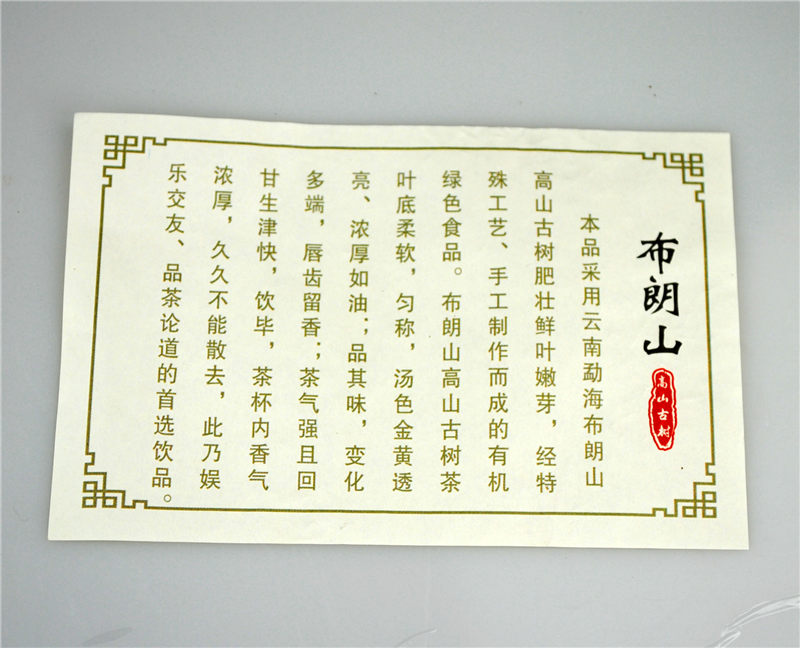 布朗山
高山古树
本品采用云南勐海布朗山
高山古树肥壮鲜叶嫩芽，经特
殊工艺、手工制作而成的有机
绿色食品。布朗山高山古树茶
叶底柔软，匀称，汤色金黄透
亮、浓厚如油；品其味，变化
多端，唇齿留香；茶气强且回
甘生津快，饮毕，茶杯内香气
浓厚，久久不能散去，此乃娱
乐交友、品茶论道的首选饮品。